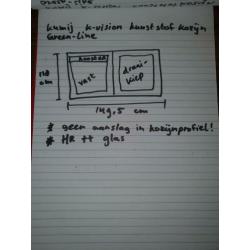 kumij k-vision kunststof kozijn
Green-line
rooster
vast
draai-
kiep
118
cm
149,5 cm
* geen aanslag in kozijnprofiel!
* HR ++ glas